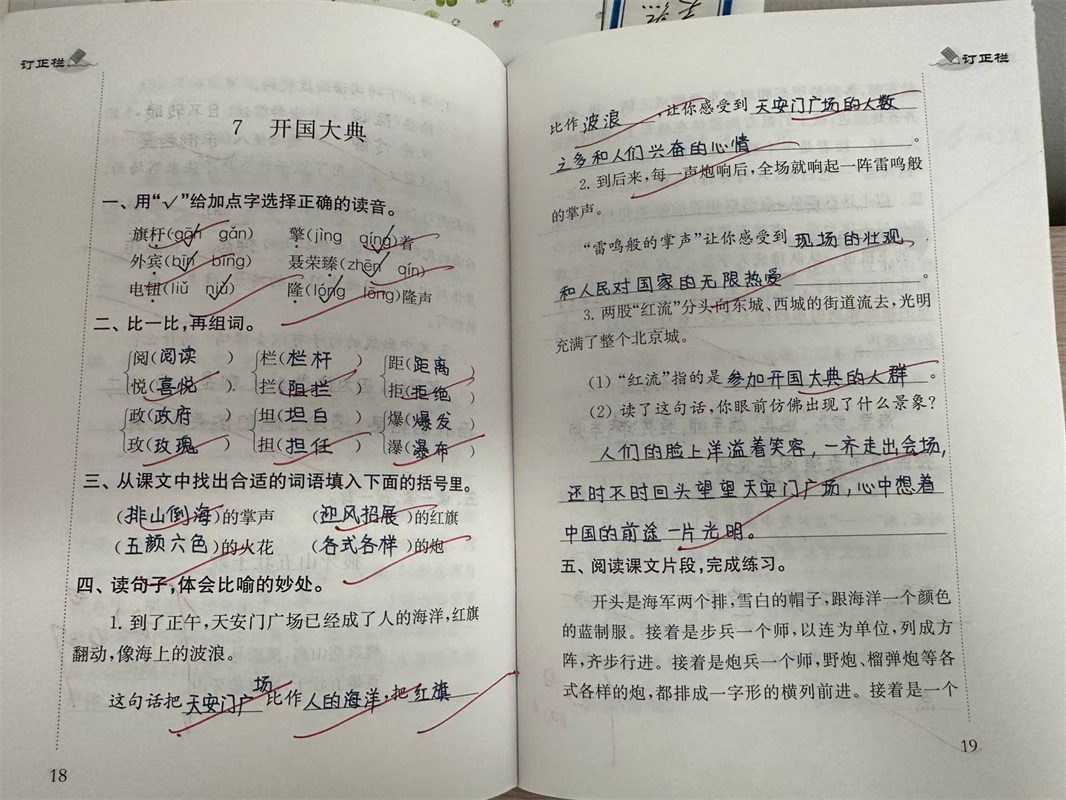 订正栏
7 开国大典
一、用“√”给加点字选择正确的读音。
旗杆(gān gǎn) 擎(jìng qíng)着
外宾(bīn bīng) 聂荣臻(zhēn qín)
电钮(liǔ niǔ) 隆(lóng lōng)隆声
二、比一比,再组词。
阅(阅读) 栏(栏杆) 距(距离)
悦(喜悦) 拦(阻拦) 拒(拒绝)
政(政府) 坦(坦白) 爆(爆发)
玫(玫瑰) 担(担任) 瀑(瀑布)
三、从课文中找出合适的词语填入下面的括号里。
(排山倒海)的掌声 (迎风招展)的红旗
(五颜六色)的火花 (各式各样)的炮
四、读句子,体会比喻的妙处。
1. 到了正午,天安门广场已经成了人的海洋,红旗
翻动,像海上的波浪。
这句话把天安门广场比作人的海洋,把红旗
18
订正栏
比作波浪,让你感受到天安门广场的人数
之多和人们兴奋的心情。
2. 到后来,每一声炮响后,全场就响起一阵雷鸣般
的掌声。
“雷鸣般的掌声”让你感受到现场的壮观
和人民对国家的无限热爱。
3. 两股“红流”分头向东城、西城的街道流去,光明
充满了整个北京城。
(1) “红流”指的是参加开国大典的人群。
(2) 读了这句话,你眼前仿佛出现了什么景象?
人们的脸上洋溢着笑容,一齐走出会场,
还时不时回头望望天安门广场,心中想着
中国的前途一片光明。
五、阅读课文片段,完成练习。
开头是海军两个排,雪白的帽子,跟海洋一个颜色
的蓝制服。接着是步兵一个师,以连为单位,列成方
阵,齐步行进。接着是炮兵一个师,野炮、榴弹炮等各
式各样的炮,都排成一字形的横列前进。接着是一个
19